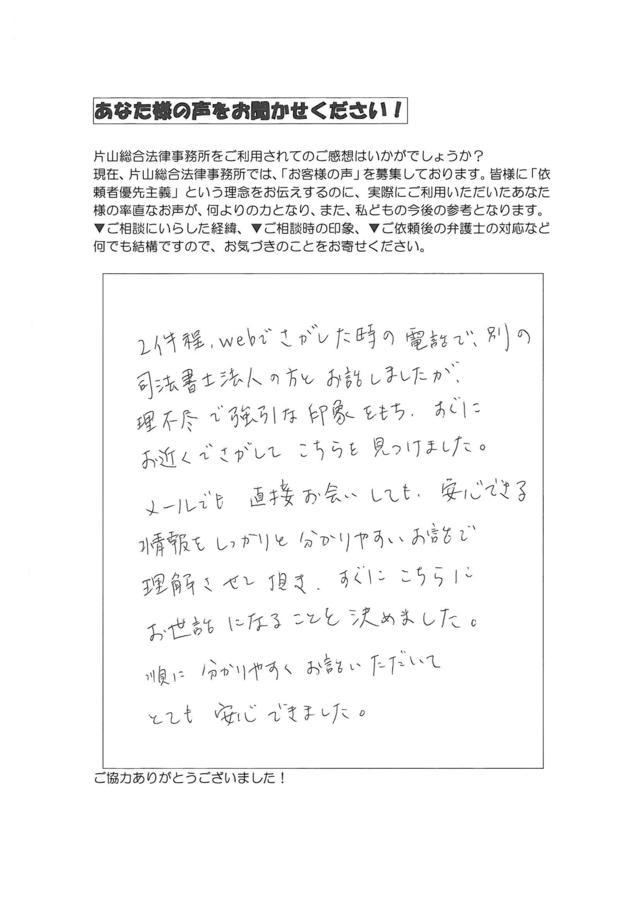 あなた様の声をお聞かせください！
片山総合法律事務所をご利用されてのご感想はいかがでしょうか？
現在、片山総合法律事務所では、「お客様の声」を募集しております。皆様に「依
頼者優先主義」という理念をお伝えするのに、実際にご利用いただいたあなた
様の率直なお声が、何よりの力となり、また、私どもの今後の参考となります。
▼ご相談にいらした経緯、▼ご相談時の印象、▼ご依頼後の弁護士の対応など
何でも結構ですので、お気づきのことをお寄せください。
2件程、webでさがした時の電話で、別の
司法書士法人の方とお話しましたが、
理不尽で強引な印象をもち、すぐに
お近くでさがしてこちらを見つけました。
メールでも直接お会いしても、安心できる
情報をしっかりと分かりやすいお話で
理解させて頂き、すぐにこちらに
お世話になることを決めました。
順に分かりやすくお話いただいて
とても安心できました。
ご協力ありがとうございました！